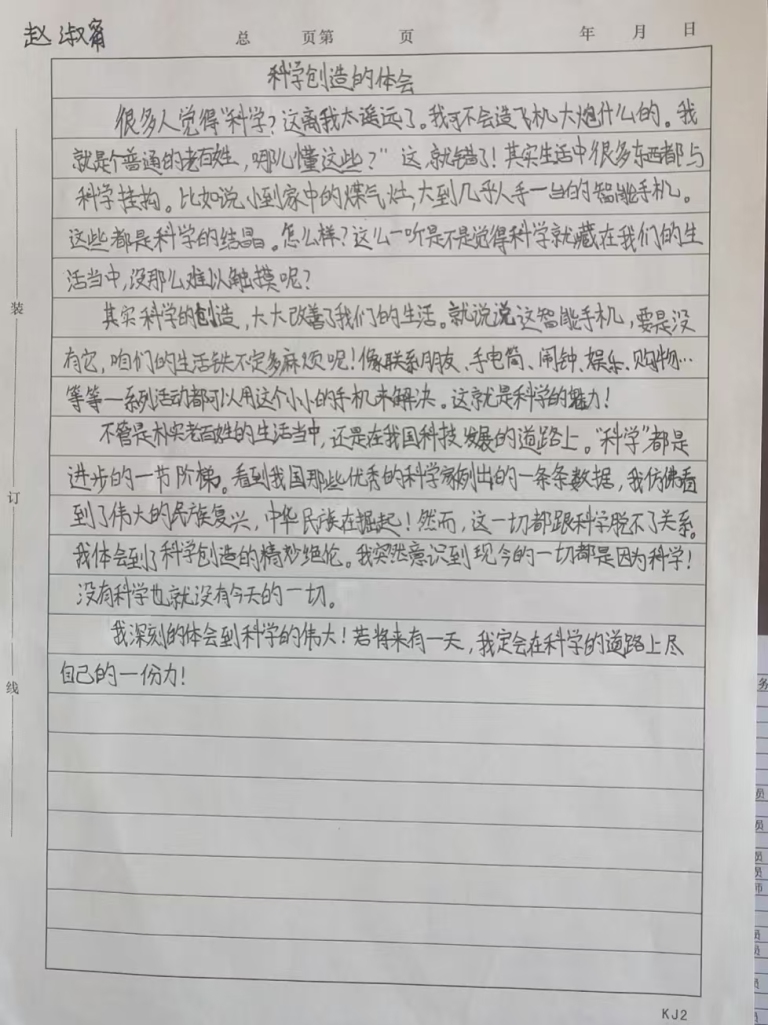 赵淑甯
总 页第 页 年 月 日
科学创造的体会
很多人觉得"科学?这离我太遥远了。我可不会造飞机大炮什么的。我
就是个普通的老百姓,哪儿懂这些?"这,就错了!其实生活中很多东西都与
科学挂钩。比如说小到家中的煤气灶,大到几乎人手一台的智能手机。
这些都是科学的结晶。怎么样?这么一听是不是觉得科学就藏在我们的生
活当中,没那么难以触摸呢?
其实科学的创造,大大改善了我们的生活。就说说这智能手机,要是没
有它,咱们的生活铁不定多麻烦呢!像联系朋友、手电筒、闹钟、娱乐、购物…
等等一系列活动都可以用这个小小的手机来解决。这就是科学的魅力!
不管是朴实老百姓的生活当中,还是在我国科技发展的道路上。"科学"都是
进步的一节阶梯。看到我国那些优秀的科学家例出的一条条数据,我仿佛看
到了伟大的民族复兴,中华民族在掘起!然而,这一切都跟科学脱不了关系。
我体会到了科学创造的精妙绝伦。我突然意识到现今的一切都是因为科学!
没有科学也就没有今天的一切。
我深刻的体会到科学的伟大!若将来有一天,我定会在科学的道路上尽
自己的一份力!
装
订
线
KJ2
务
员
员
员
员
师
员
员
员